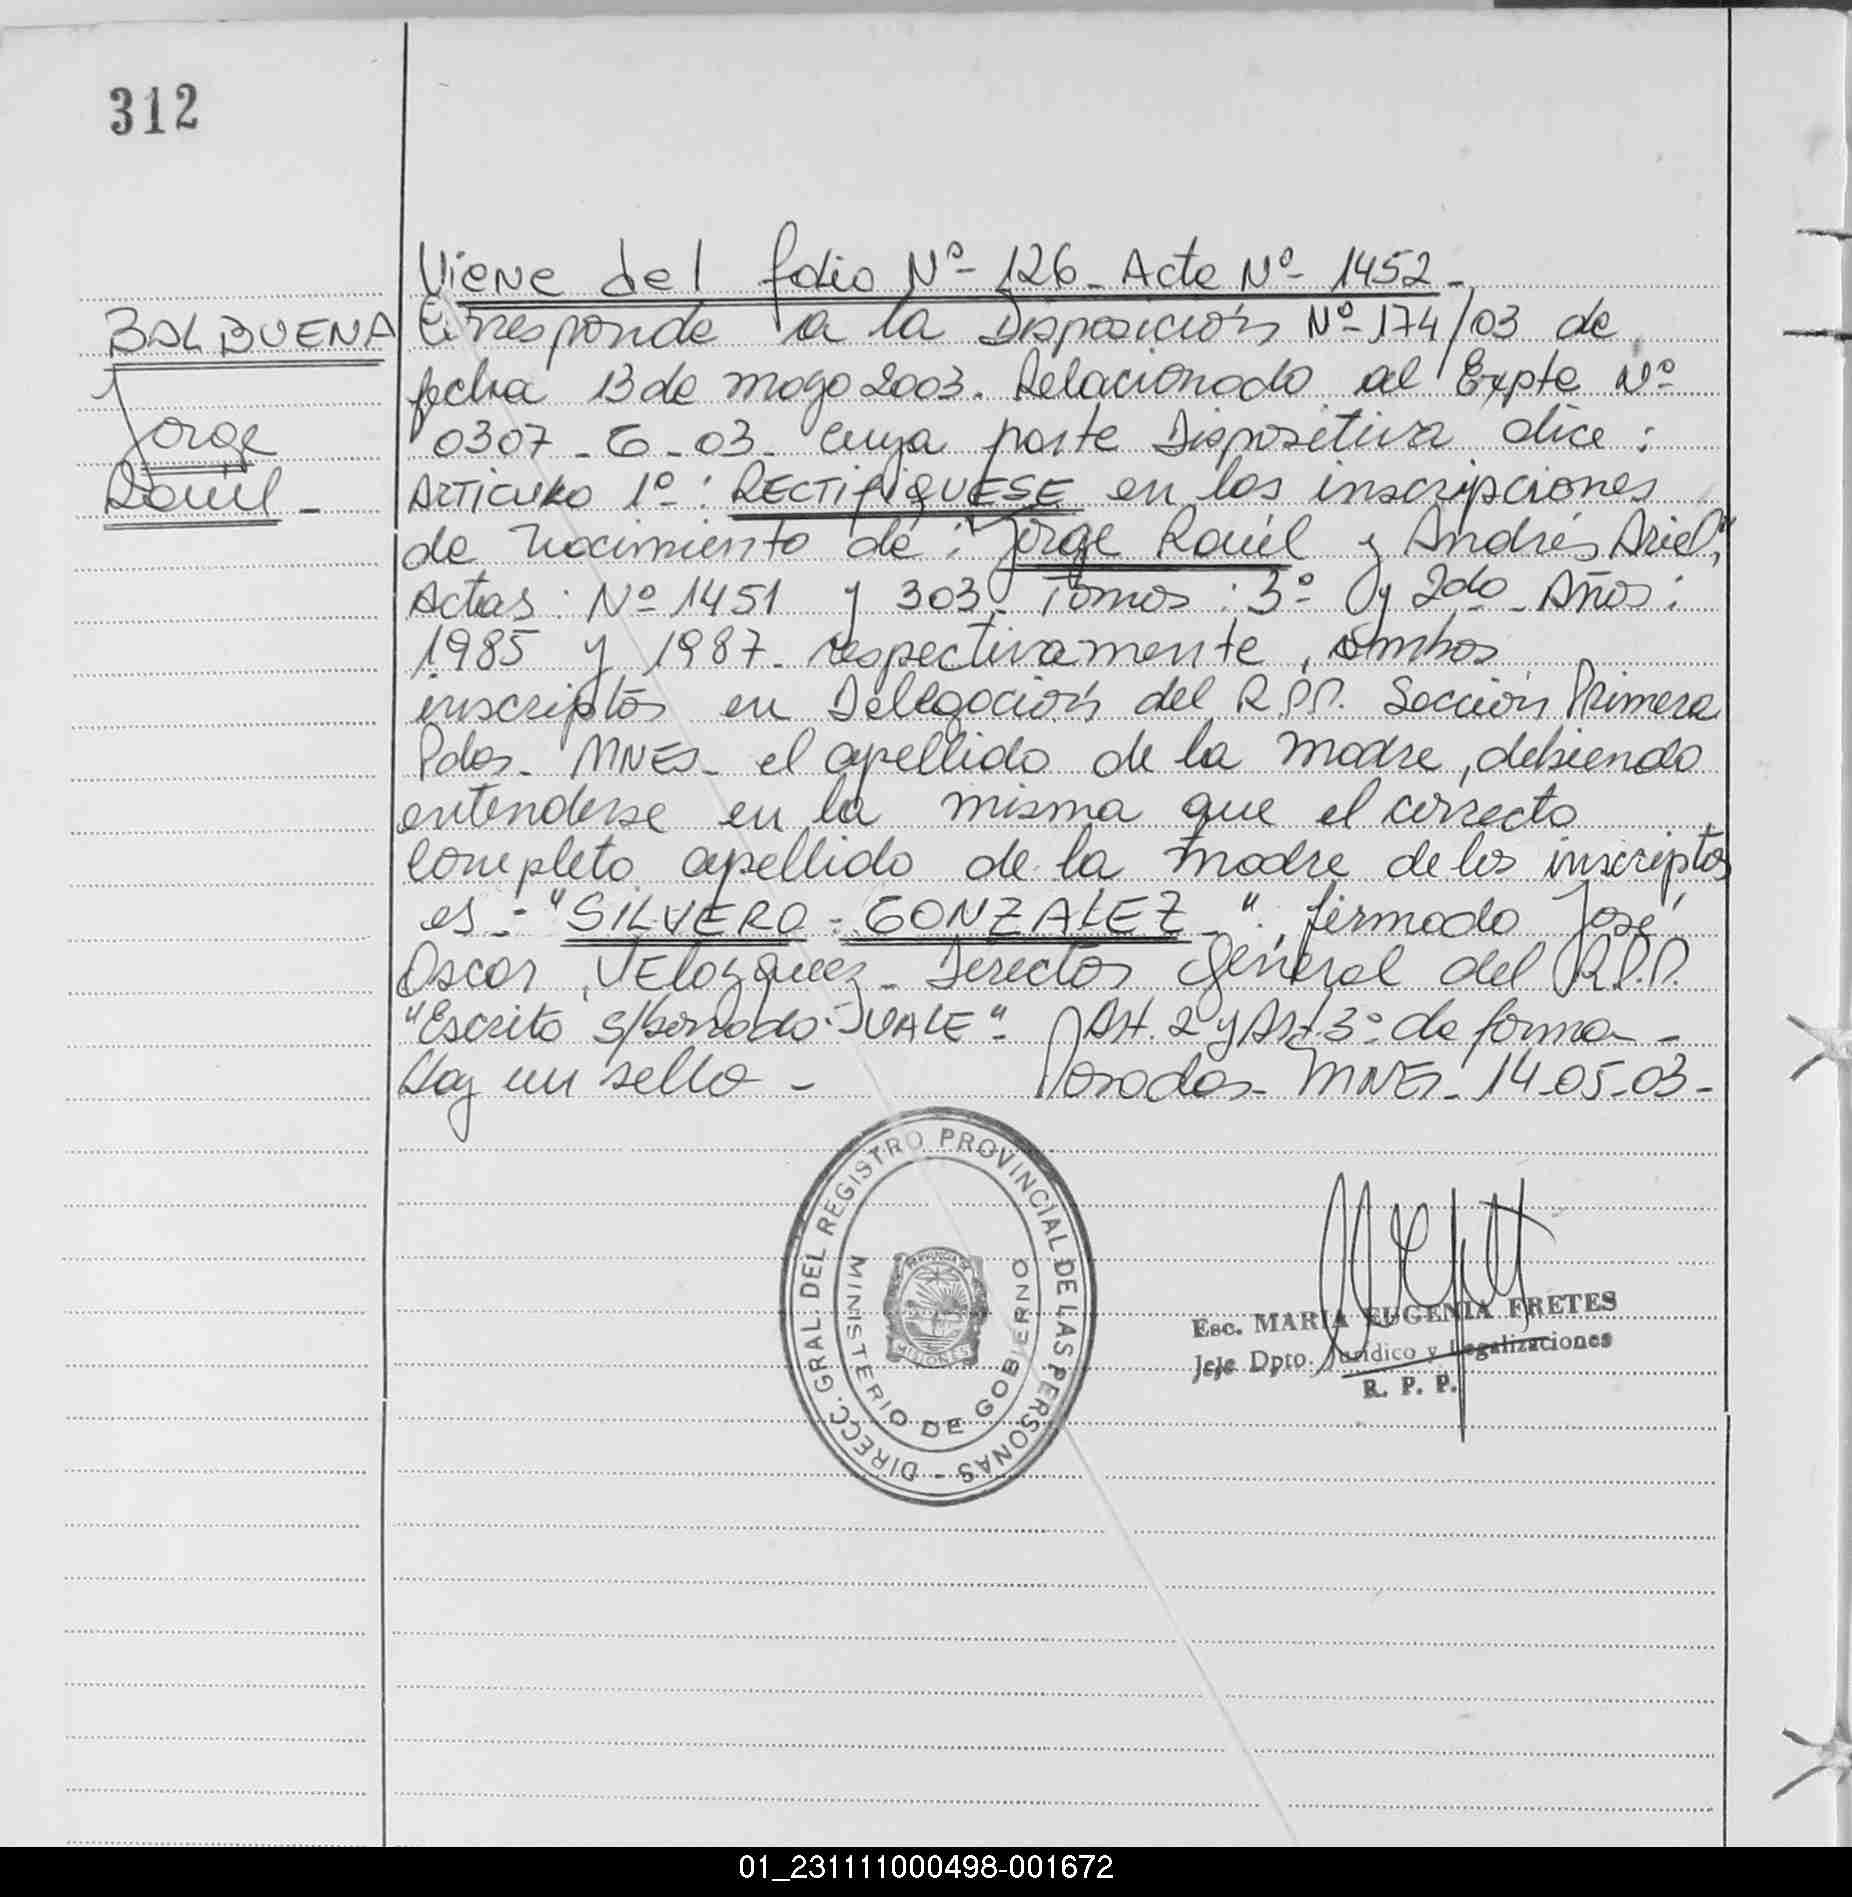 312
BALBUENA
Jorge
Raúl -
Viene del folio Nº- 126- Acta Nº- 1452-
Corresponde a la Disposición Nº-174/03 de
fecha 13 de mayo 2003. Relacionado al Expte Nº
0307 - G - 03 - cuya parte Dispositiva dice :
Articulo 1º- : RECTIFIQUESE en las inscripciones
de nacimiento de : Jorge Raúl y Andrés Ariel,"
Actas : Nº 1451 y 303- Tomos : 3º- y 2do- Años :
1985 y 1987- respectivamente, ambos
inscriptos en Delegación del R.P.P. Sección Primera
Pdas- MNES- el apellido de la madre, debiendo
entenderse en la misma que el correcto
completo apellido de la madre de los inscriptos
es - "SILVERO - GONZALEZ -". firmado José
Oscar Velazquez- Director General del R.P.P.
"Escrito s/borrado: VALE"- Art. 2 y Art. 3º- de forma -
Hay un sello - Posadas- MNES- 14-05-03-
DIRECC. GRAL. DEL REGISTRO PROVINCIAL DE LAS PERSONAS -
MINISTERIO DE GOBIERNO
PROVINCIA DE
MISIONES
Esc. MARIA EUGENIA FRETES
Jefe Dpto. Jurídico y Legalizaciones
R. P. P.
01_231111000498-001672